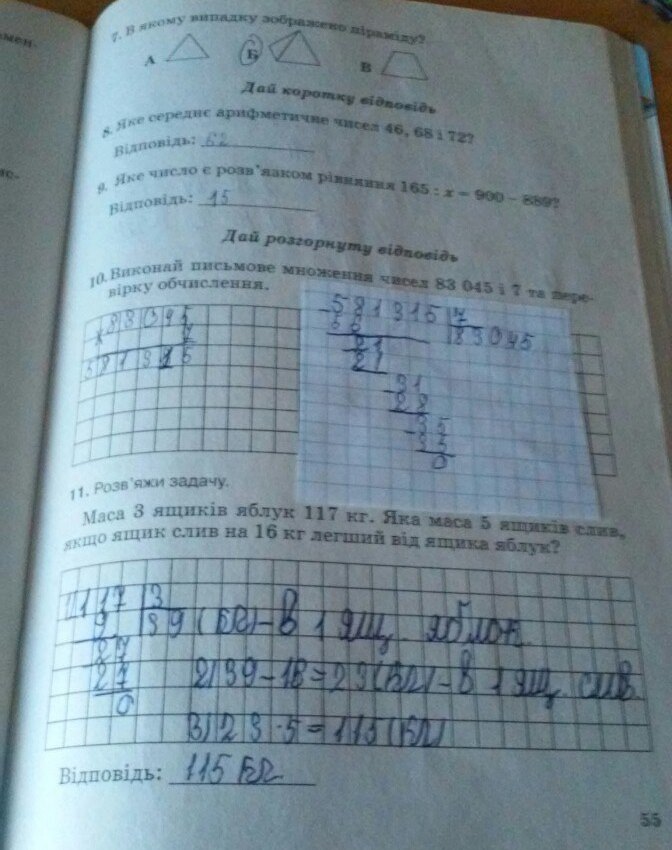 7. В якому випадку зображено піраміду?
А Б В
Дай коротку відповідь
8. Яке середнє арифметичне чисел 46, 68 і 72?
Відповідь: 62
9. Яке число є розв'язком рівняння 165 : x = 900 – 889?
Відповідь: 15
Дай розгорнуту відповідь
10. Виконай письмове множення чисел 83 045 і 7 та пере-
вірку обчислення.
× 83045
7
581315
– 581315 7
58 83045
– 21
21
– 31
28
– 35
35
0
11. Розв'яжи задачу.
Маса 3 ящиків яблук 117 кг. Яка маса 5 ящиків слив,
якщо ящик слив на 16 кг легший від ящика яблук?
1) 117 3
9 39 (кг) – в 1 ящ. яблок
– 27
27 2) 39 – 16 = 23 (кг) – в 1 ящ. слив
0
3) 23 · 5 = 115 (кг)
Відповідь: 115 кг
55